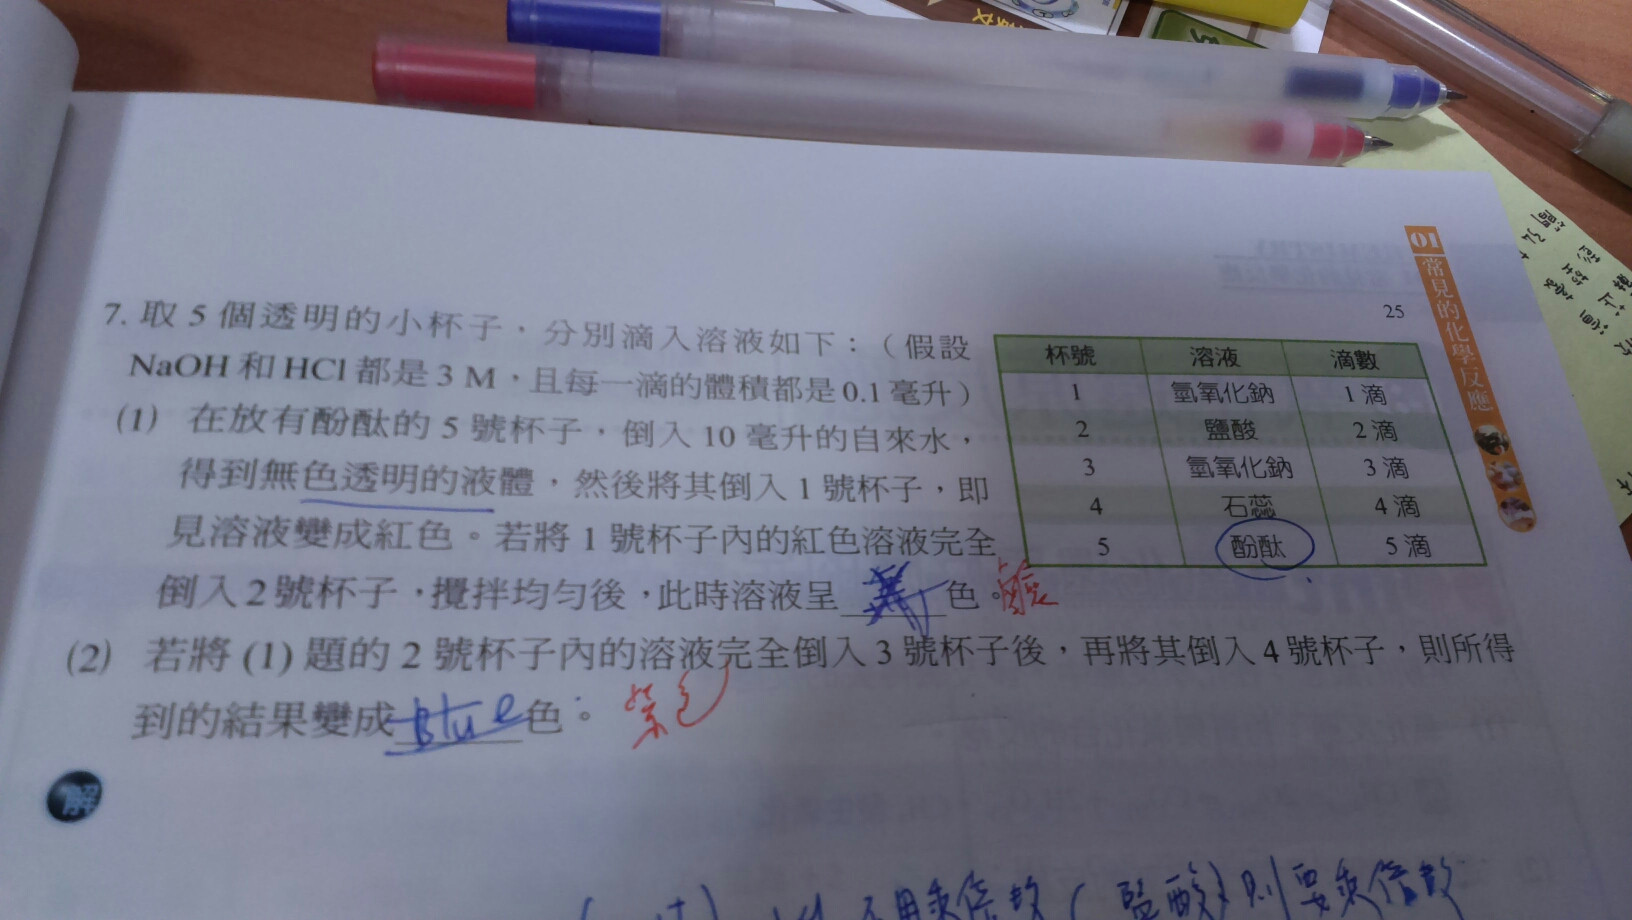 01 常見的化學反應
25
7. 取 5 個透明的小杯子，分別滴入溶液如下：（假設
NaOH 和 HCl 都是 3 M，且每一滴的體積都是 0.1 毫升）
(1) 在放有酚酞的 5 號杯子，倒入 10 毫升的自來水，
得到無色透明的液體，然後將其倒入 1 號杯子，即
見溶液變成紅色。若將 1 號杯子內的紅色溶液完全
倒入 2 號杯子，攪拌均勻後，此時溶液呈 色。
(2) 若將 (1) 題的 2 號杯子內的溶液完全倒入 3 號杯子後，再將其倒入 4 號杯子，則所得
到的結果變成 Blue 色。 紫色
杯號 溶液 滴數
1 氫氧化鈉 1 滴
2 鹽酸 2 滴
3 氫氧化鈉 3 滴
4 石蕊 4 滴
5 酚酞 5 滴
解
不用乘倍數 ( 鹽酸 ) 則要乘倍數